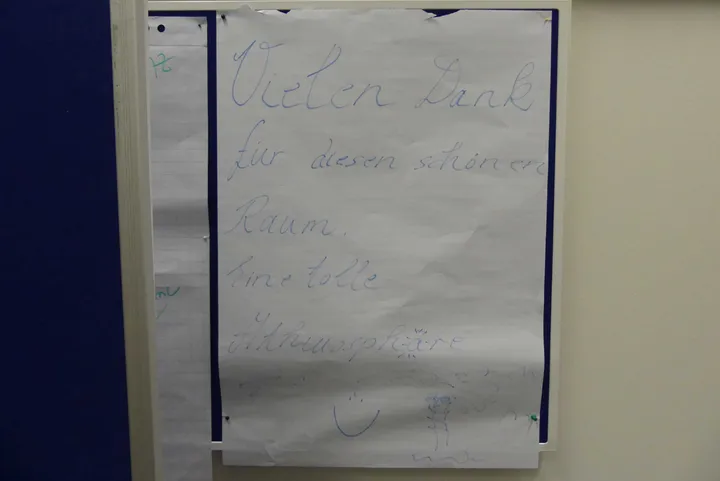 Vielen Dank
für diesen schönen
Raum.
Eine tolle